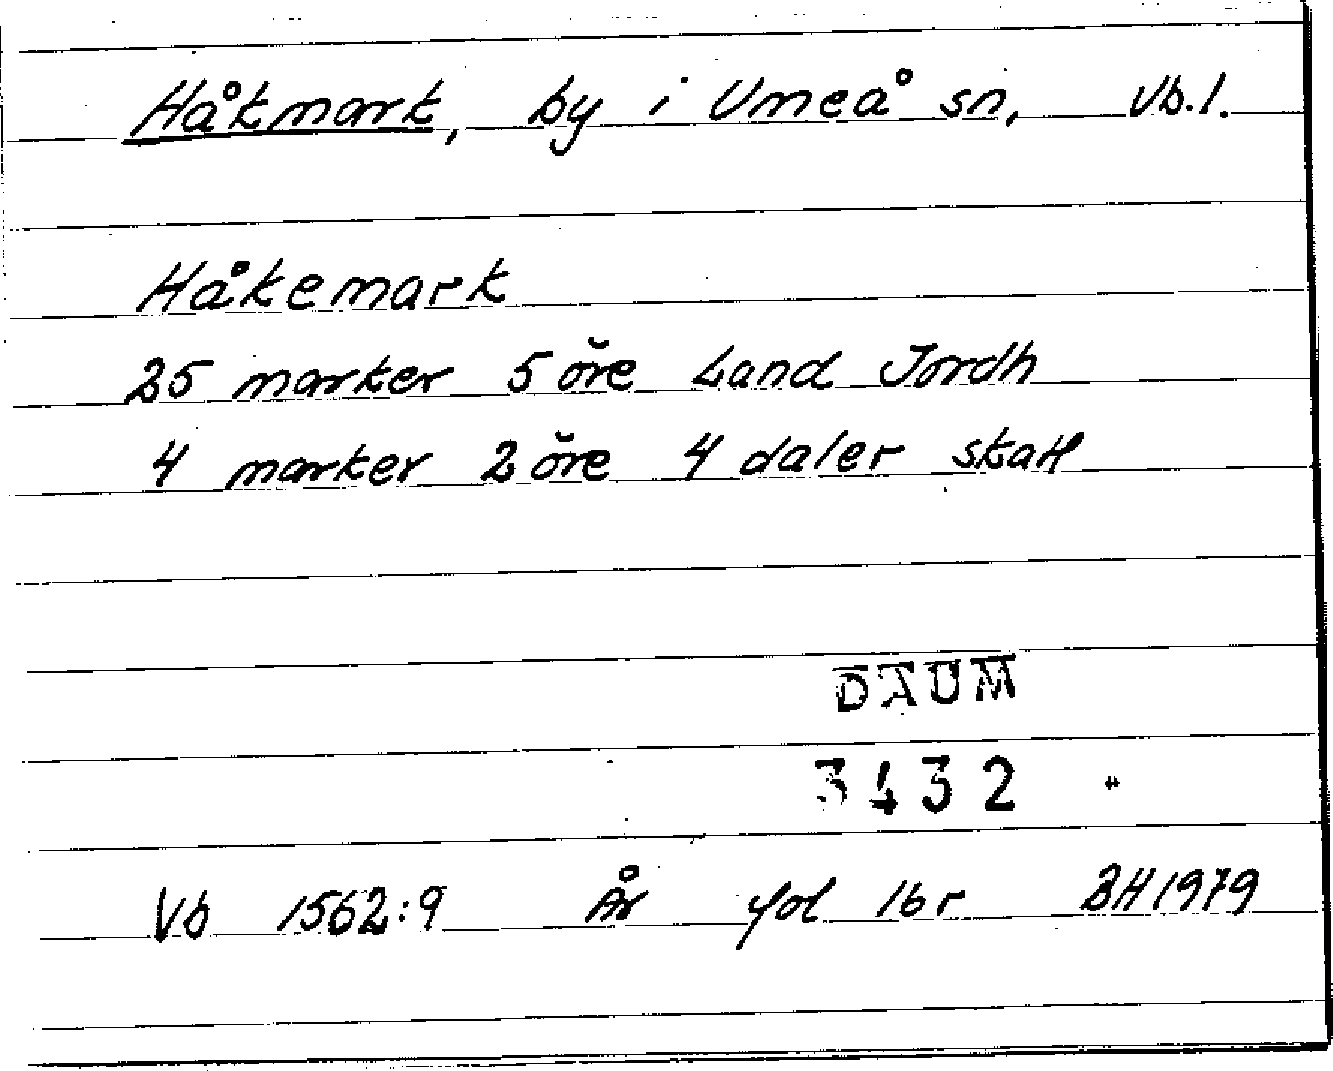 Håkmark, by i Umeå sn, Vb.l.
Håkemark
25 marker 5 öre Land Jordh
4 marker 2 öre 4 daler skatt
DAUM
3432
Vb 1562:9 År fol 16r BH1979